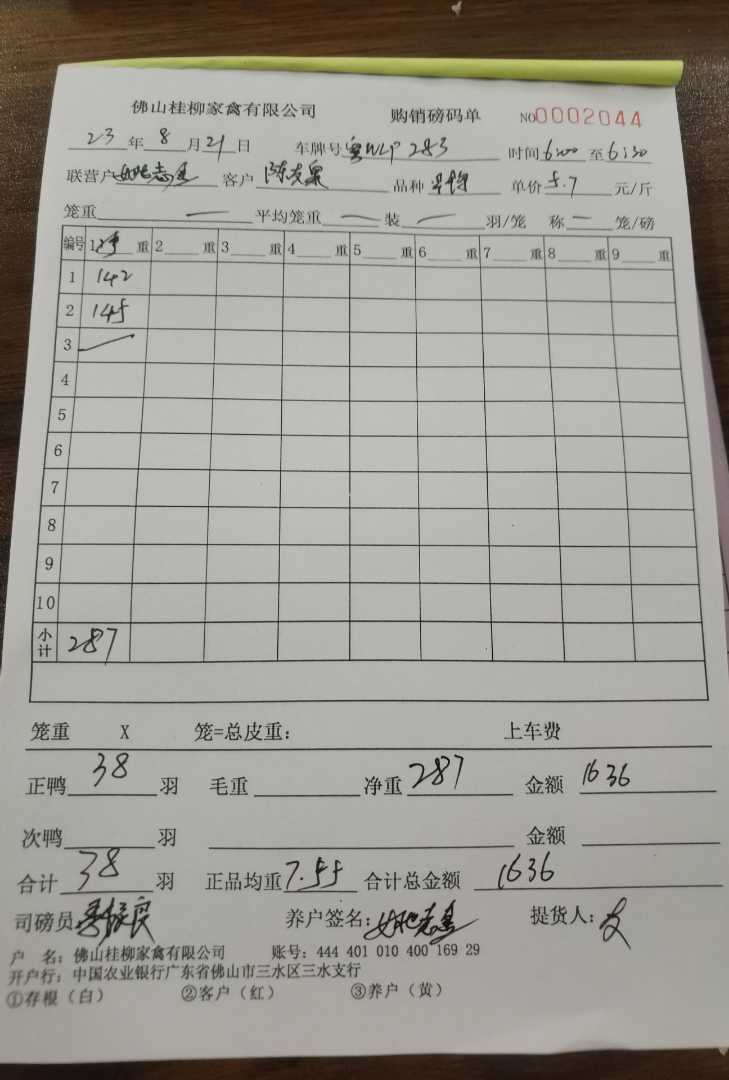 佛山桂柳家禽有限公司 购销磅码单 NO0002044
23年8月21日 车牌号粤WLP 283 时间6:00至6:30
联营户 客户 品种 单价5.7元/斤
笼重 — 平均笼重 — 装 — 羽/笼 称 — 笼/磅
编号 1 净 重 2 重 3 重 4 重 5 重 6 重 7 重 8 重 9 重
1 142
2 145
3 —
4
5
6
7
8
9
10
小计 287
笼重 X 笼=总皮重: 上车费
正鸭 38 羽 毛重 净重 287 金额 1636
次鸭 羽 金额
合计 38 羽 正品均重 7.55 合计总金额 1636
司磅员: 养户签名: 提货人:
户 名: 佛山桂柳家禽有限公司 账号: 444 401 010 400 169 29
开户行: 中国农业银行广东省佛山市三水区三水支行
①存根(白) ②客户(红) ③养户(黄)